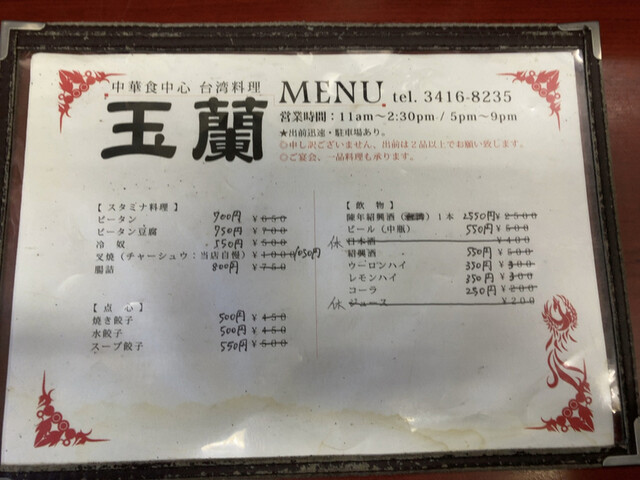 中華食中心 台湾料理
玉蘭
MENU tel. 3416-8235
営業時間：11am～2:30pm / 5pm～9pm
★出前迅速・駐車場あり。
◎申し訳ございません、出前は２品以上でお願い致します。
◎ご宴会、一品料理も承ります。
【 スタミナ料理 】
ピータン 700円 ￥650
ピータン豆腐 750円 ￥700
冷 奴 550円 ￥500
叉焼（チャーシュウ：当店自慢） ￥1000 1050円
腸詰 800円 ￥750
【 点 心 】
焼き餃子 500円 ￥450
水餃子 500円 ￥450
スープ餃子 550円 ￥500
【 飲 物 】
陳年紹興酒（ ）１本 2550円 ￥2500
ビール（中瓶） 550円 ￥500
休 日本酒 ￥400
紹興酒 550円 ￥500
ウーロンハイ 350円 ￥300
レモンハイ 350円 ￥300
コーラ 250円 ￥200
休 ジュース ￥200